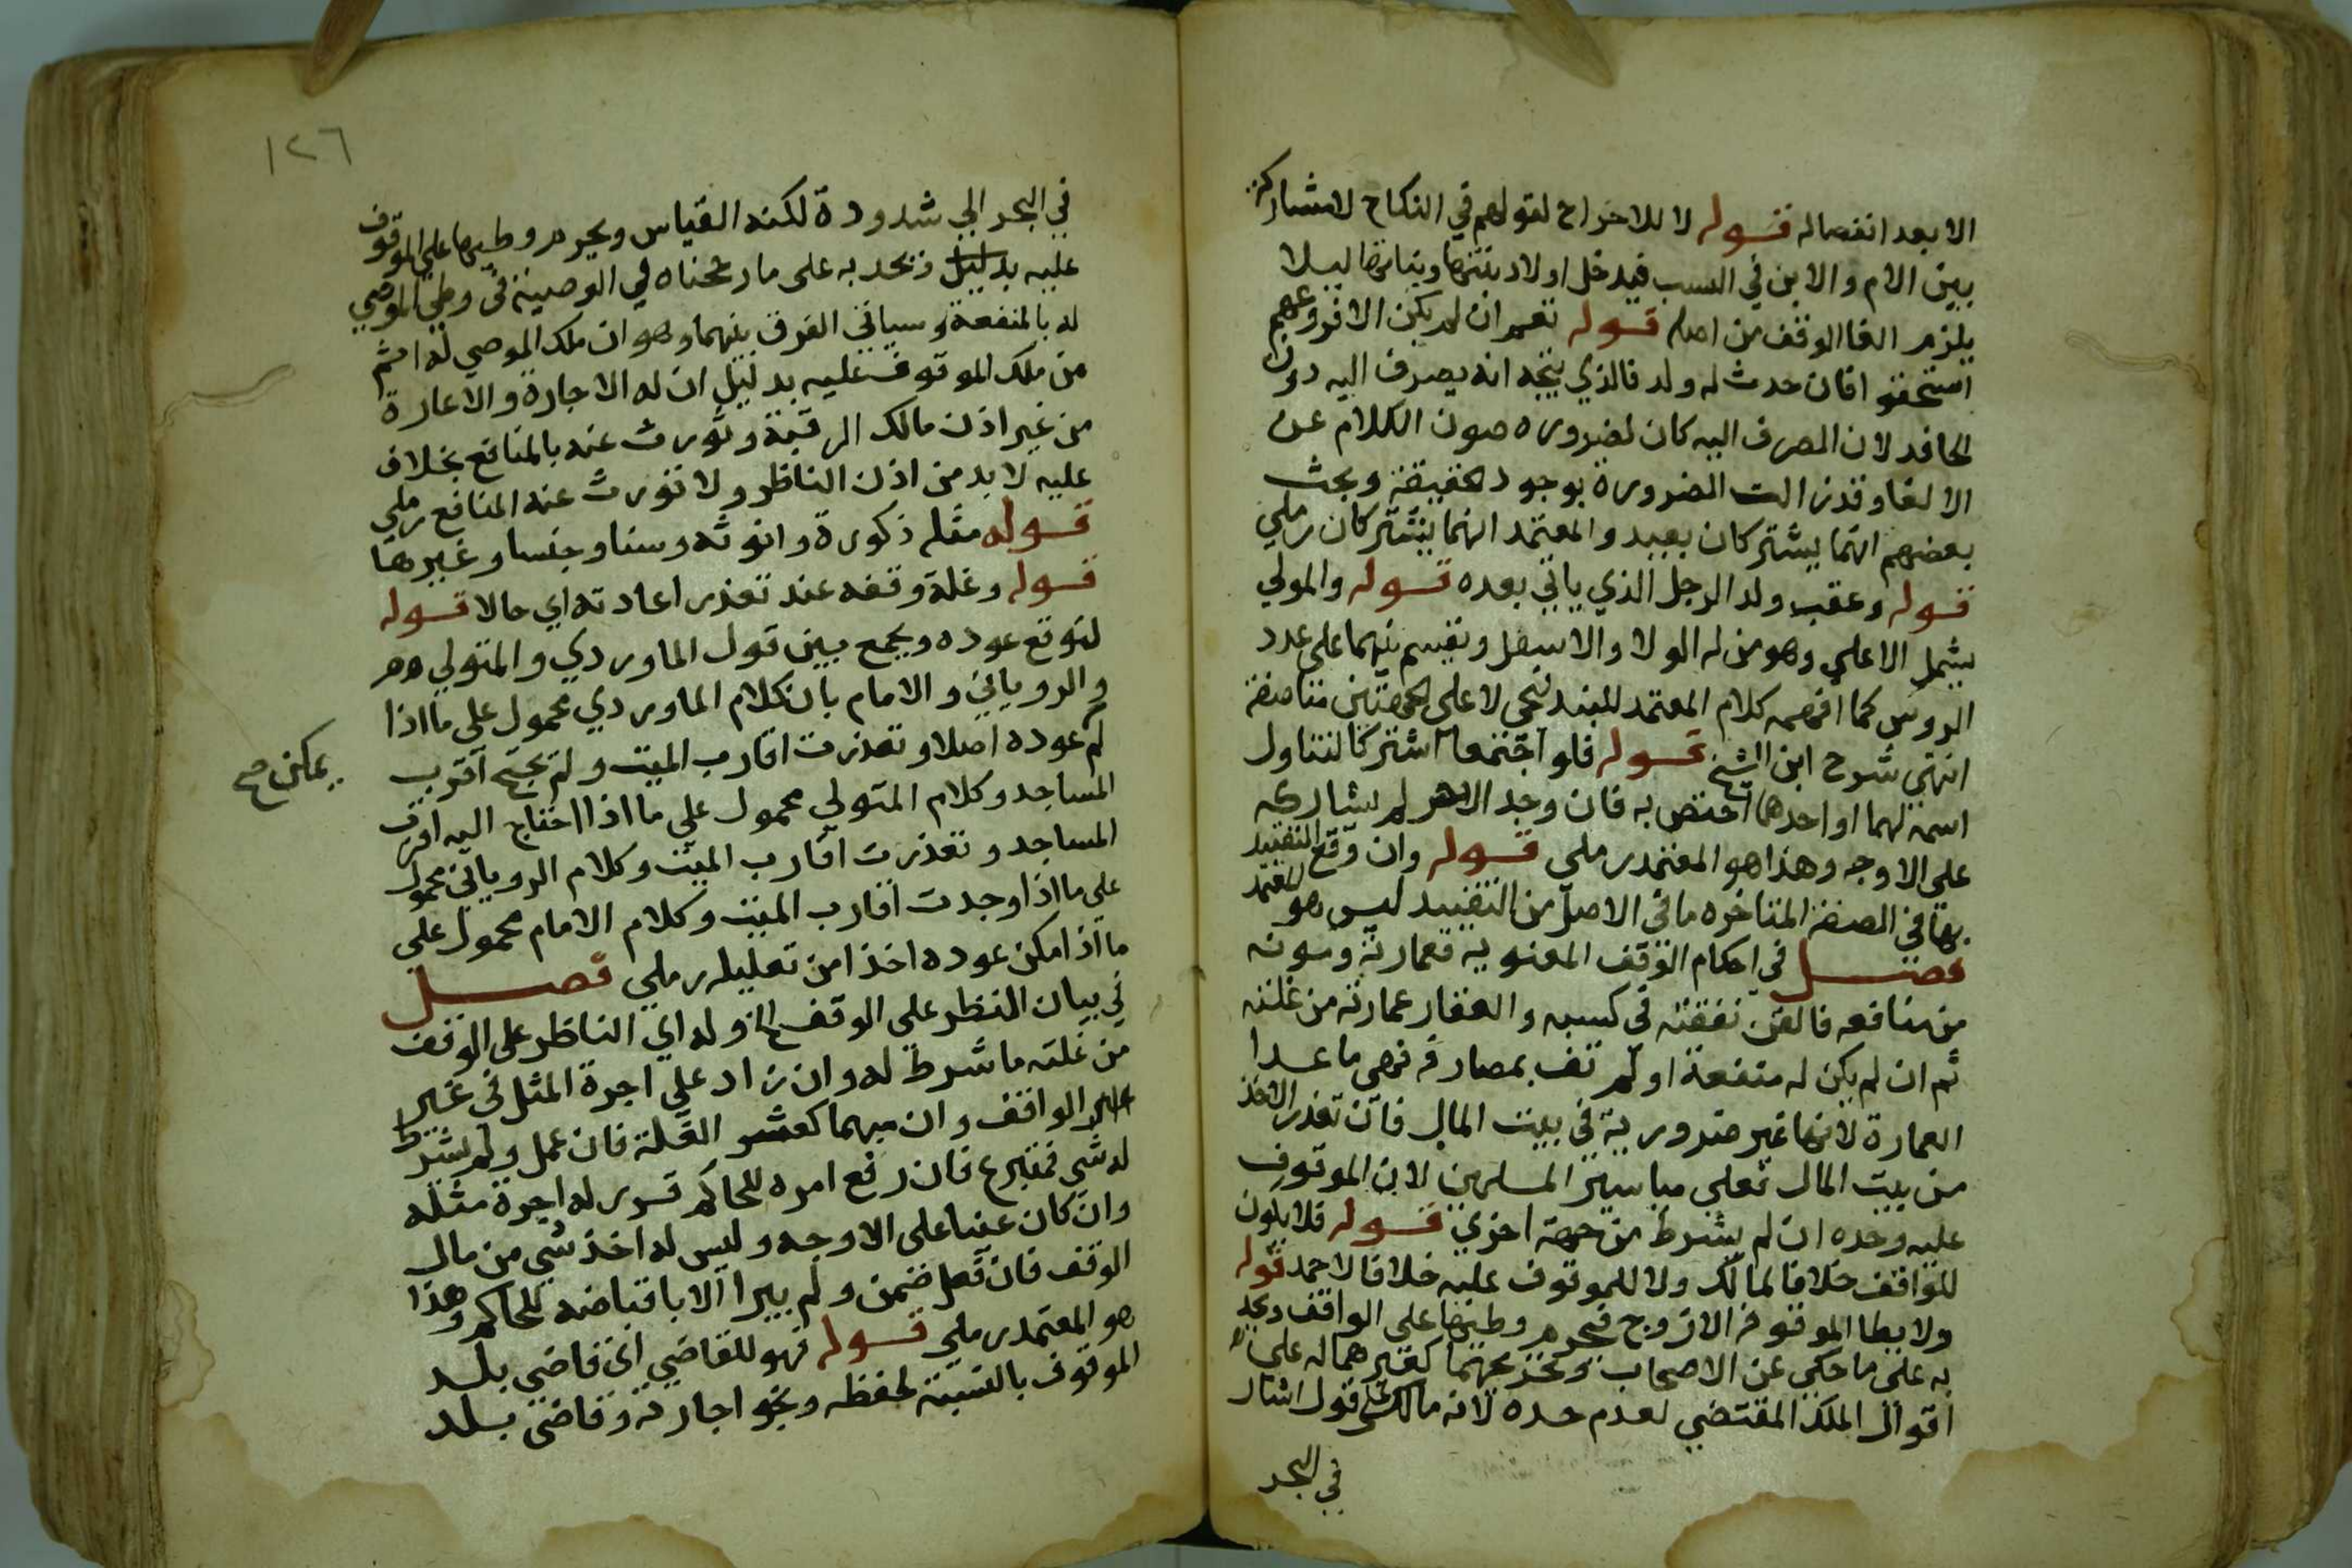 الا بعد انفصاله قوله لا للاخراج لقولهم في النكاح لا مشاركة
بين الام والابن في النسب فيدخل اولاد بنتها وبناتها ليلا
يلزم الغا الوقف من اصله قوله نعم ان لم يكن الا فروعهم
استحقوا فان حدث له ولد فالذي يتجه انه يصرف اليه دون
الحافد لان الصرف اليه كان لضرورة صون الكلام عن
الالغا وقد زالت الضرورة بوجود الحقيقة وبحث
بعضهم انهما يشتركان بعيد والمعتمد انهما يشتركان رملي
قوله وعقب ولد الرجل الذي ياتي بعده قوله والمولي
يشمل الاعلي وهو من له الولا والاسفل ويقسم بينهما علي عدد
الروس كما افهمه كلام المعتمد للبندنيجي لا علي الجهتين مناصفة
انتهي شرح ابن الشيخ قوله فلو اجتمعا اشتركا لتناول
اسمه لهما او احدهما اختص به فان وجد الاخر لم يشاركه
علي الاوجه وهذا هو المعتمد رملي قوله وان وقع التقييد
بها في الصفة المتاخره ما في الاصل من التقييد ليس هو المعتمد
فصل في احكام الوقف المعنوية فعمارته ومونه
من منافعه فالقن نفقته في كسبه والعقار عمارته من غلته
ثم ان لم يكن له منفعة او لم تف بمصارفه فهي ما عدا
العمارة لانها غير ضرورية في بيت المال فان تعذر الاخذ
من بيت المال فعلي مياسير المسلمين لا الموقوف
عليه وحده ان لم يشرط من جهة اخري قوله فلا يكون
للواقف خلافا لمالك ولا للموقوف عليه خلافا لاحمد قوله
ولا يطا الموقوفه الا زوج فيحرم وطيها علي الواقف ويحد
به علي ما حكي عن الاصحاب وتخريجهما كغيرهما له علي
اقوال الملك المقتضي لعدم حده لانه مالك علي قول اشار
في البحر
١٢٦
في البحر الي شدوده لكنه القياس ويحرم وطيها علي الموقوف
عليه بدليل ويحد به علي ما رجحناه في الوصية في وطي الموصي
له بالمنفعة وسياتي الفرق بينهما وهو ان ملك الموصي له اتم
من ملك الموقوف عليه بدليل ان له الاجارة والاعارة
من غير اذن مالك الرقبة وتورث عنه بالمنافع بخلاف
عليه لا بد من اذن الناظر ولا تورث عنه المنافع رملي
قوله مثله ذكورة وانوثه وسنا وجنسا وغيرها
قوله وغلة وقفه عند تعذر اعادته اي حالا قوله
لتوقع عوده ويجمع بين قول الماوردي والمتولي
والروياني والامام بان كلام الماوردي محمول علي ما اذا
لم عوده اصلا وتعذرت اقارب الميت ولم يحتج اقرب
يمكن صح
المساجد وكلام المتولي محمول علي ما اذا احتاج اليه اقرب
المساجد وتعذرت اقارب الميت وكلام الروياني محمول
علي ما اذا وجدت اقارب الميت وكلام الامام محمول علي
ما اذا امكن عوده اخذا من تعليله رملي فصل
في بيان النظر علي الوقف الخ وله اي الناظر علي الوقف
من غلته ما شرط له وان زاد علي اجرة المثل في غير
الواقف وان مبهما كعشر الغلة فان عمل ولم يشرط
له شي فمتبرع فان رفع امره للحاكم قرر له اجرة مثله
وان كان غنيا علي الاوجه وليس له اخذ شي من مال
الوقف فان فعل ضمن ولم يبرا الا باقباضه للحاكم وهذا
هو المعتمد رملي قوله فهو للقاضي اي قاضي بلد
الموقوف بالنسبة لحفظه ونحو اجارته وقاضي بلد